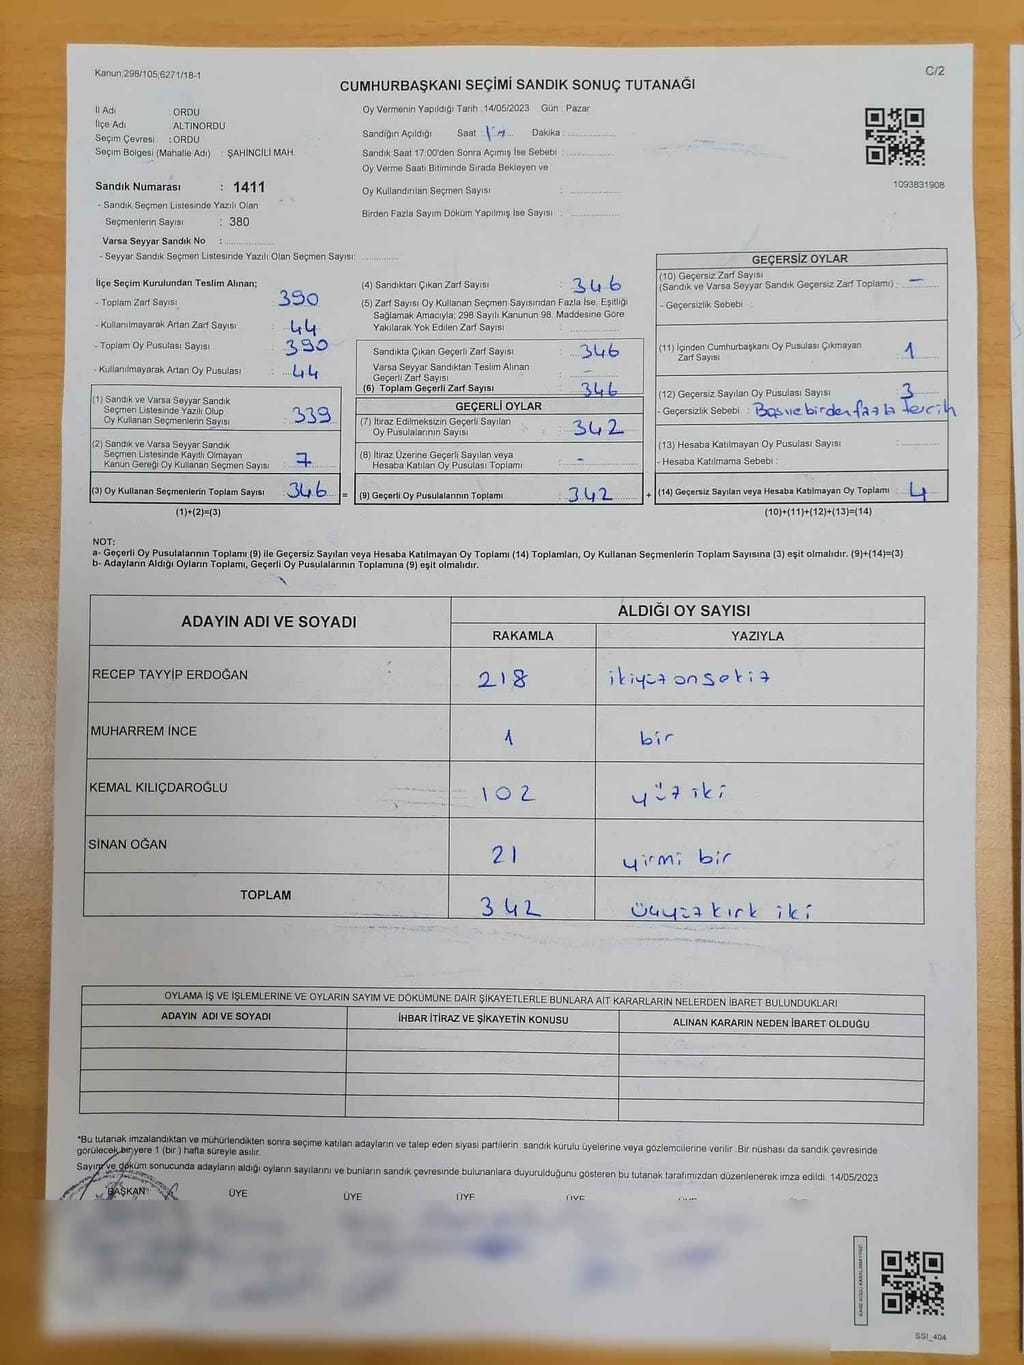 Kanun:298/105;6271/18-1
C/2
CUMHURBAŞKANI SEÇİMİ SANDIK SONUÇ TUTANAĞI
İl Adı : ORDU
İlçe Adı : ALTINORDU
Seçim Çevresi : ORDU
Seçim Bölgesi (Mahalle Adı) : ŞAHİNCİLİ MAH.
Sandık Numarası : 1411
- Sandık Seçmen Listesinde Yazılı Olan
Seçmenlerin Sayısı : 380
Varsa Seyyar Sandık No :
- Seyyar Sandık Seçmen Listesinde Yazılı Olan Seçmen Sayısı:
Oy Vermenin Yapıldığı Tarih :14/05/2023 Gün : Pazar
Sandığın Açıldığı Saat : 17 Dakika :
Sandık Saat 17:00'den Sonra Açımış İse Sebebi :
Oy Verme Saati Bitiminde Sırada Bekleyen ve
Oy Kullandırılan Seçmen Sayısı :
Birden Fazla Sayım Döküm Yapılmış İse Sayısı :
1093831908
İlçe Seçim Kurulundan Teslim Alınan;
- Toplam Zarf Sayısı : 390
- Kullanılmayarak Artan Zarf Sayısı : 44
- Toplam Oy Pusulası Sayısı : 390
- Kullanılmayarak Artan Oy Pusulası : 44
(1) Sandık ve Varsa Seyyar Sandık
Seçmen Listesinde Yazılı Olup
Oy Kullanan Seçmenlerin Sayısı : 339
(2) Sandık ve Varsa Seyyar Sandık
Seçmen Listesinde Kayıtlı Olmayan
Kanun Gereği Oy Kullanan Seçmen Sayısı : 7
(3) Oy Kullanan Seçmenlerin Toplam Sayısı : 346 =
(1)+(2)=(3)
(4) Sandıktan Çıkan Zarf Sayısı : 346
(5) Zarf Sayısı Oy Kullanan Seçmen Sayısından Fazla İse, Eşitliği
Sağlamak Amacıyla; 298 Sayılı Kanunun 98. Maddesine Göre
Yakılarak Yok Edilen Zarf Sayısı :
Sandıkta Çıkan Geçerli Zarf Sayısı : 346
Varsa Seyyar Sandıktan Teslim Alınan
Geçerli Zarf Sayısı : -
(6) Toplam Geçerli Zarf Sayısı : 346
GEÇERLİ OYLAR
(7) İtiraz Edilmeksizin Geçerli Sayılan
Oy Pusulalarının Sayısı : 342
(8) İtiraz Üzerine Geçerli Sayılan veya
Hesaba Katılan Oy Pusulası Toplamı : -
(9) Geçerli Oy Pusulalarının Toplamı : 342 +
GEÇERSİZ OYLAR
(10) Geçersiz Zarf Sayısı
(Sandık ve Varsa Seyyar Sandık Geçersiz Zarf Toplamı) : -
- Geçersizlik Sebebi :
(11) İçinden Cumhurbaşkanı Oy Pusulası Çıkmayan
Zarf Sayısı : 1
(12) Geçersiz Sayılan Oy Pusulası Sayısı : 3
- Geçersizlik Sebebi : Boş ve birden fazla tercih
(13) Hesaba Katılmayan Oy Pusulası Sayısı :
- Hesaba Katılmama Sebebi :
(14) Geçersiz Sayılan veya Hesaba Katılmayan Oy Toplamı : 4
(10)+(11)+(12)+(13)=(14)
NOT:
a- Geçerli Oy Pusulalarının Toplamı (9) ile Geçersiz Sayılan veya Hesaba Katılmayan Oy Toplamı (14) Toplamları, Oy Kullanan Seçmenlerin Toplam Sayısına (3) eşit olmalıdır. (9)+(14)=(3)
b- Adayların Aldığı Oyların Toplamı, Geçerli Oy Pusulalarının Toplamına (9) eşit olmalıdır.
ADAYIN ADI VE SOYADI ALDIĞI OY SAYISI
RAKAMLA YAZIYLA
RECEP TAYYİP ERDOĞAN 218 ikiyüz onsekiz
MUHARREM İNCE 1 bir
KEMAL KILIÇDAROĞLU 102 yüz iki
SİNAN OĞAN 21 yirmi bir
TOPLAM 342 üçyüz kırk iki
OYLAMA İŞ VE İŞLEMLERİNE VE OYLARIN SAYIM VE DÖKÜMÜNE DAİR ŞİKAYETLERLE BUNLARA AİT KARARLARIN NELERDEN İBARET BULUNDUKLARI
ADAYIN ADI VE SOYADI İHBAR İTİRAZ VE ŞİKAYETİN KONUSU ALINAN KARARIN NEDEN İBARET OLDUĞU
*Bu tutanak imzalandıktan ve mühürlendikten sonra seçime katılan adayların ve talep eden siyasi partilerin sandık kurulu üyelerine veya gözlemcilerine verilir .Bir nüshası da sandık çevresinde
görülecek bir yere 1 (bir ) hafta süreyle asılır.
Sayım ve döküm sonucunda adayların aldığı oyların sayılarını ve bunların sandık çevresinde bulunanlara duyurulduğunu gösteren bu tutanak tarafımızdan düzenlenerek imza edildi. 14/05/2023
BAŞKAN ÜYE ÜYE ÜYE ÜYE
KARE KODU KARALAMAYINIZ!
SSI_404